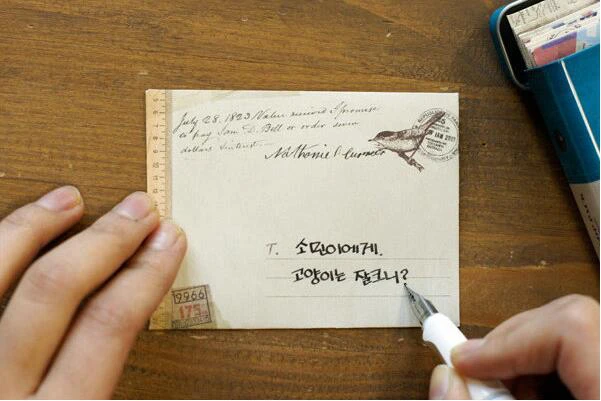 July 28. 1823 Value received I promise
to pay Sam D. Bell or order seven
dollars Interest.
Nathanie
T. 소민이에게.
고양이는 잘크니?
9966
175